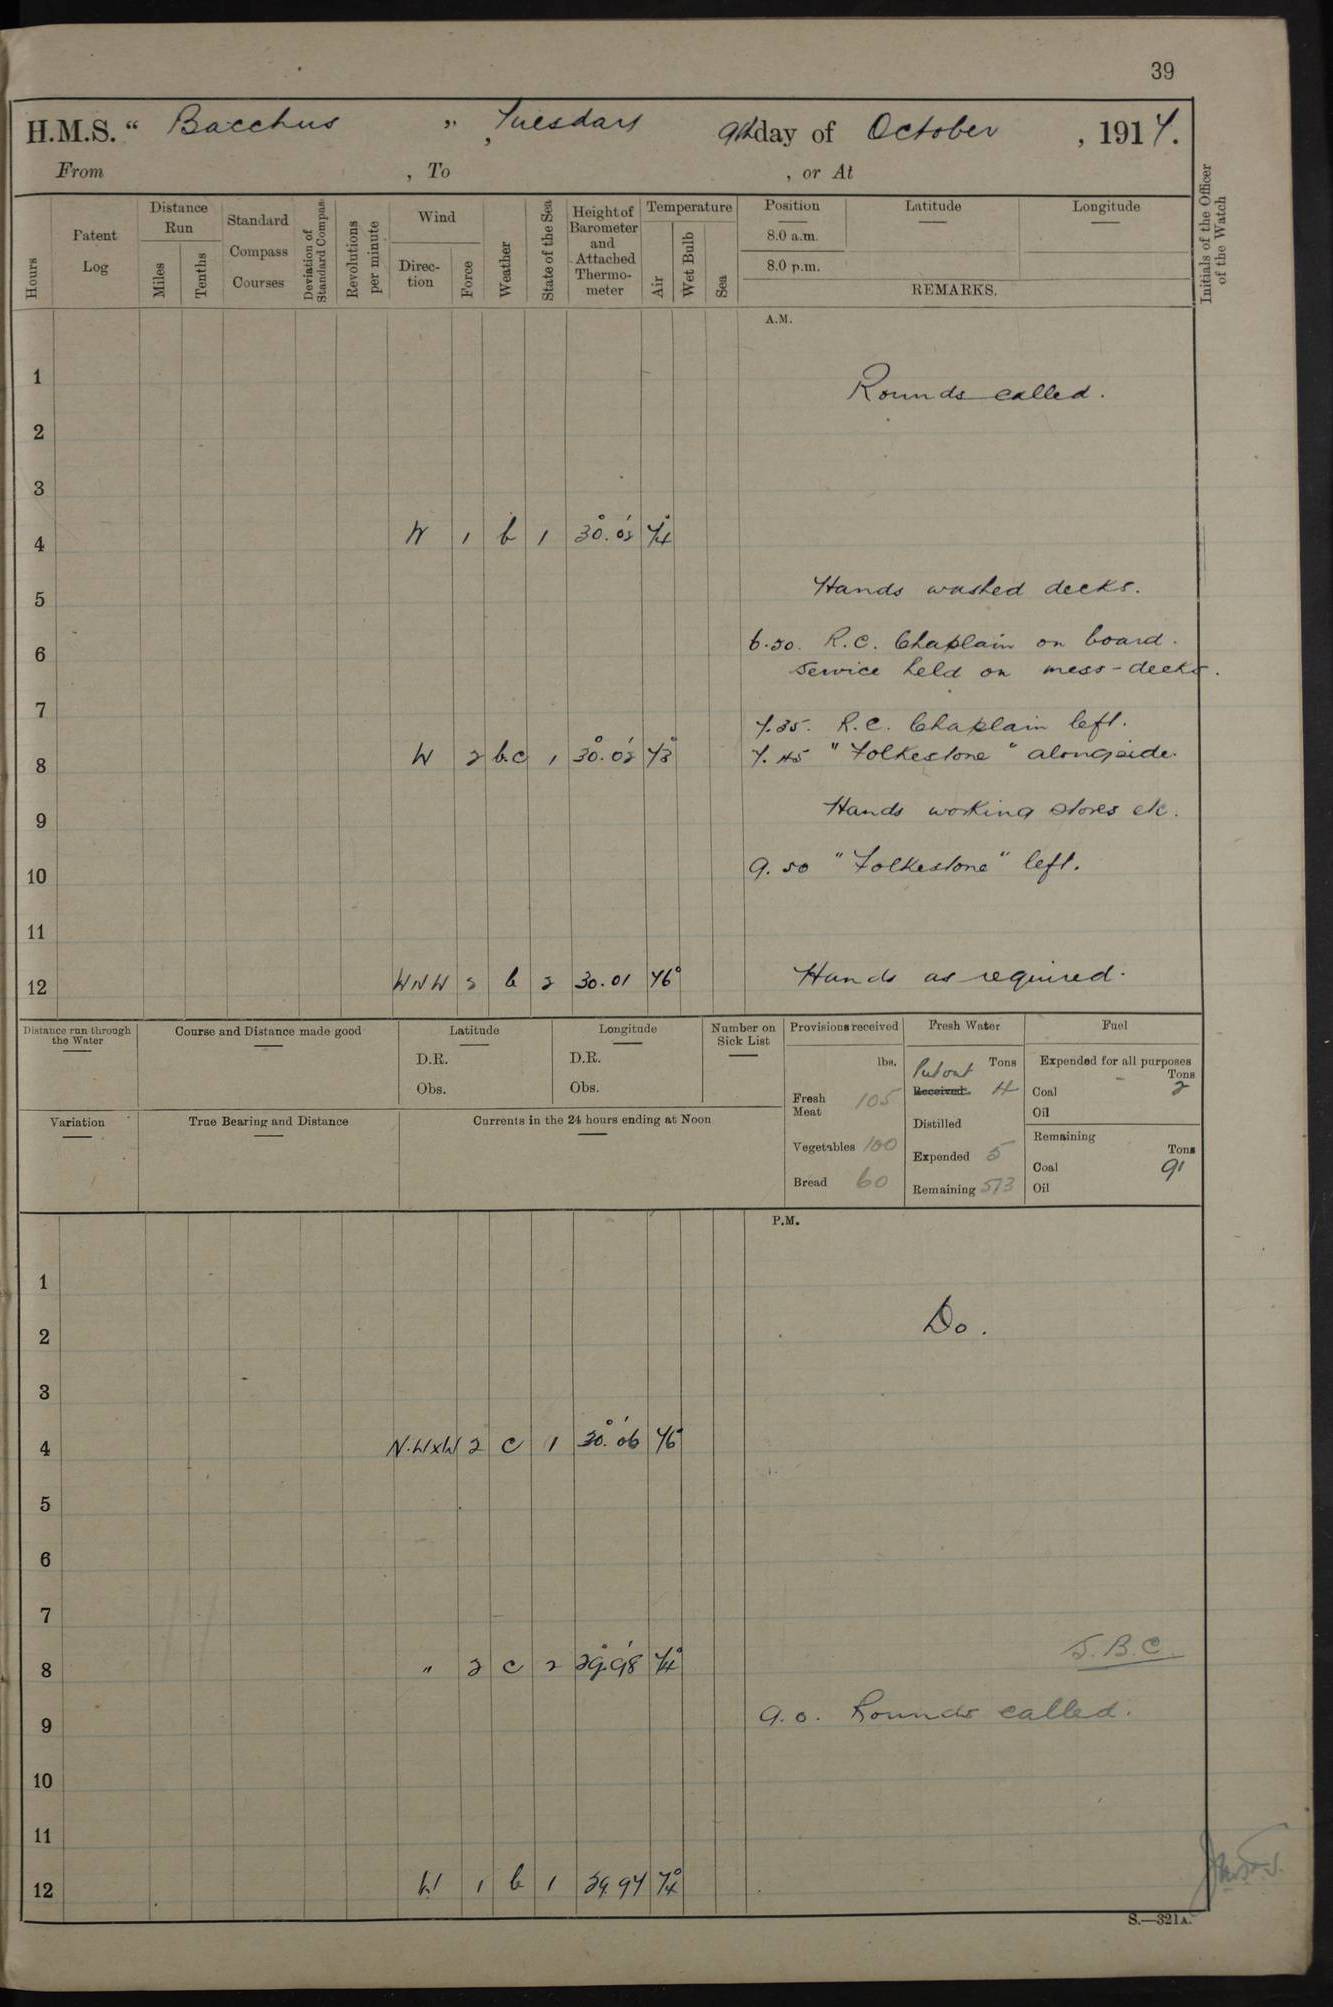 39
H.M.S. “ Bacchus ”, Tuesday 9th day of October , 1917.
From , To , or At
Hours
Patent Log
Distance Run
Miles
Tenths
Standard Compass Courses
Deviation of Standard Compass
Revolutions per minute
Wind
Direction
Force
Weather
State of the Sea
Height of Barometer and Attached Thermometer
Temperature
Air
Wet Bulb
Sea
Position
8.0 a.m.
8.0 p.m.
Latitude
Longitude
REMARKS.
Initials of the Officer of the Watch
A.M.
1
Rounds called.
2
3
4 W 1 b 1 30.02 74°
5 Hands washed decks.
6 6.50. R.C. Chaplain on board.
Service held on mess-decks.
7 7.35. R.C. Chaplain left.
8 W 2 b.c 1 30.02 73° 7.45 "Folkestone" alongside.
9 Hands working stores etc.
10 9.50 "Folkestone" left.
11
12 WNW 2 b 2 30.01 76° Hands as required.
Distance run through the Water
Course and Distance made good
Latitude
D.R.
Obs.
Longitude
D.R.
Obs.
Number on Sick List
Variation
True Bearing and Distance
Currents in the 24 hours ending at Noon
Provisions received
lbs.
Fresh Meat 105
Vegetables 100
Bread 60
Fresh Water
Tons
Put out
Received. 4
Distilled
Expended 5
Remaining 573
Fuel
Expended for all purposes
Tons
Coal 2
Oil
Remaining
Tons
Coal 91
Oil
P.M.
1
Do.
2
3
4 N.WxW 2 c 1 30.06 76°
5
6
7
8 " 2 c 2 29.98 74°
J.B.C.
9 9.0. Rounds called.
10
11
12 W 1 b 1 29.97 74°
S.—321A.